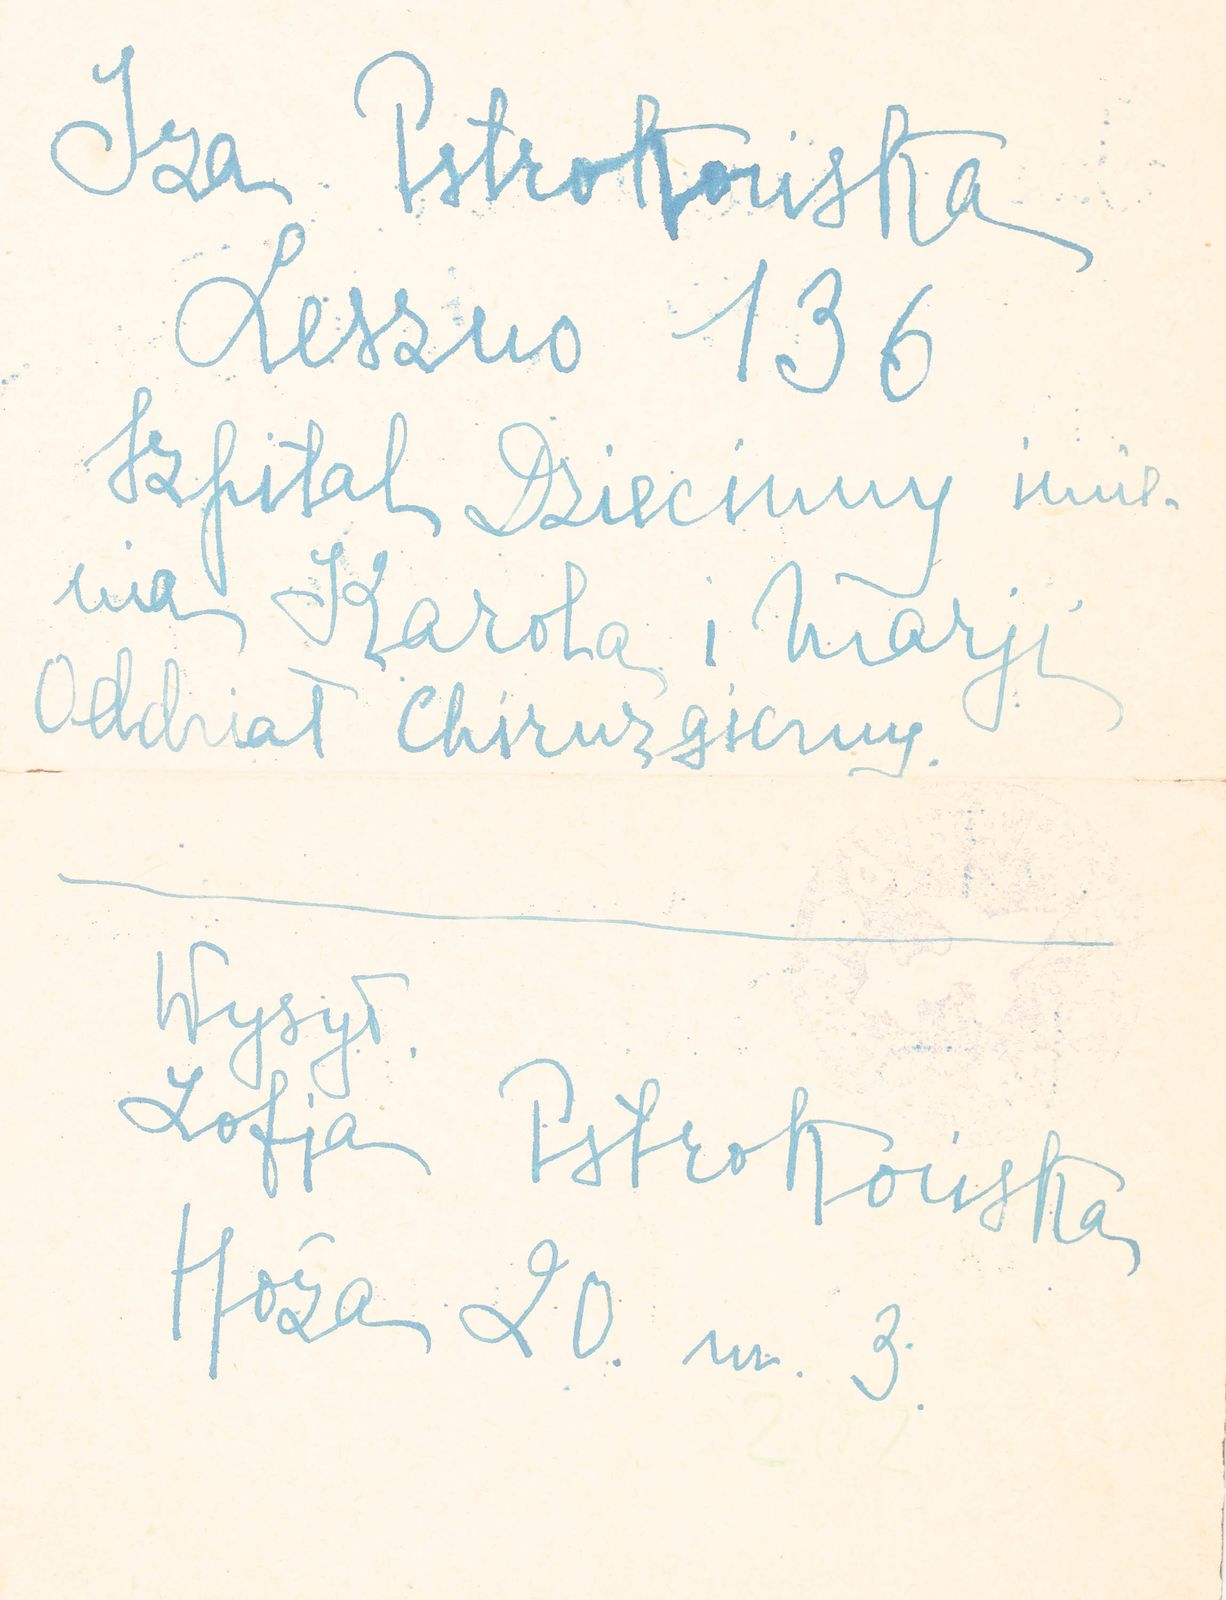 Iza Pstrokońska
Leszno 136
Szpital Dziecinny imie-
nia Karola i Marji
Oddział Chirurgiczny.
Wysył.
Zofja Pstrokońska
Hoża 20. m. 3.